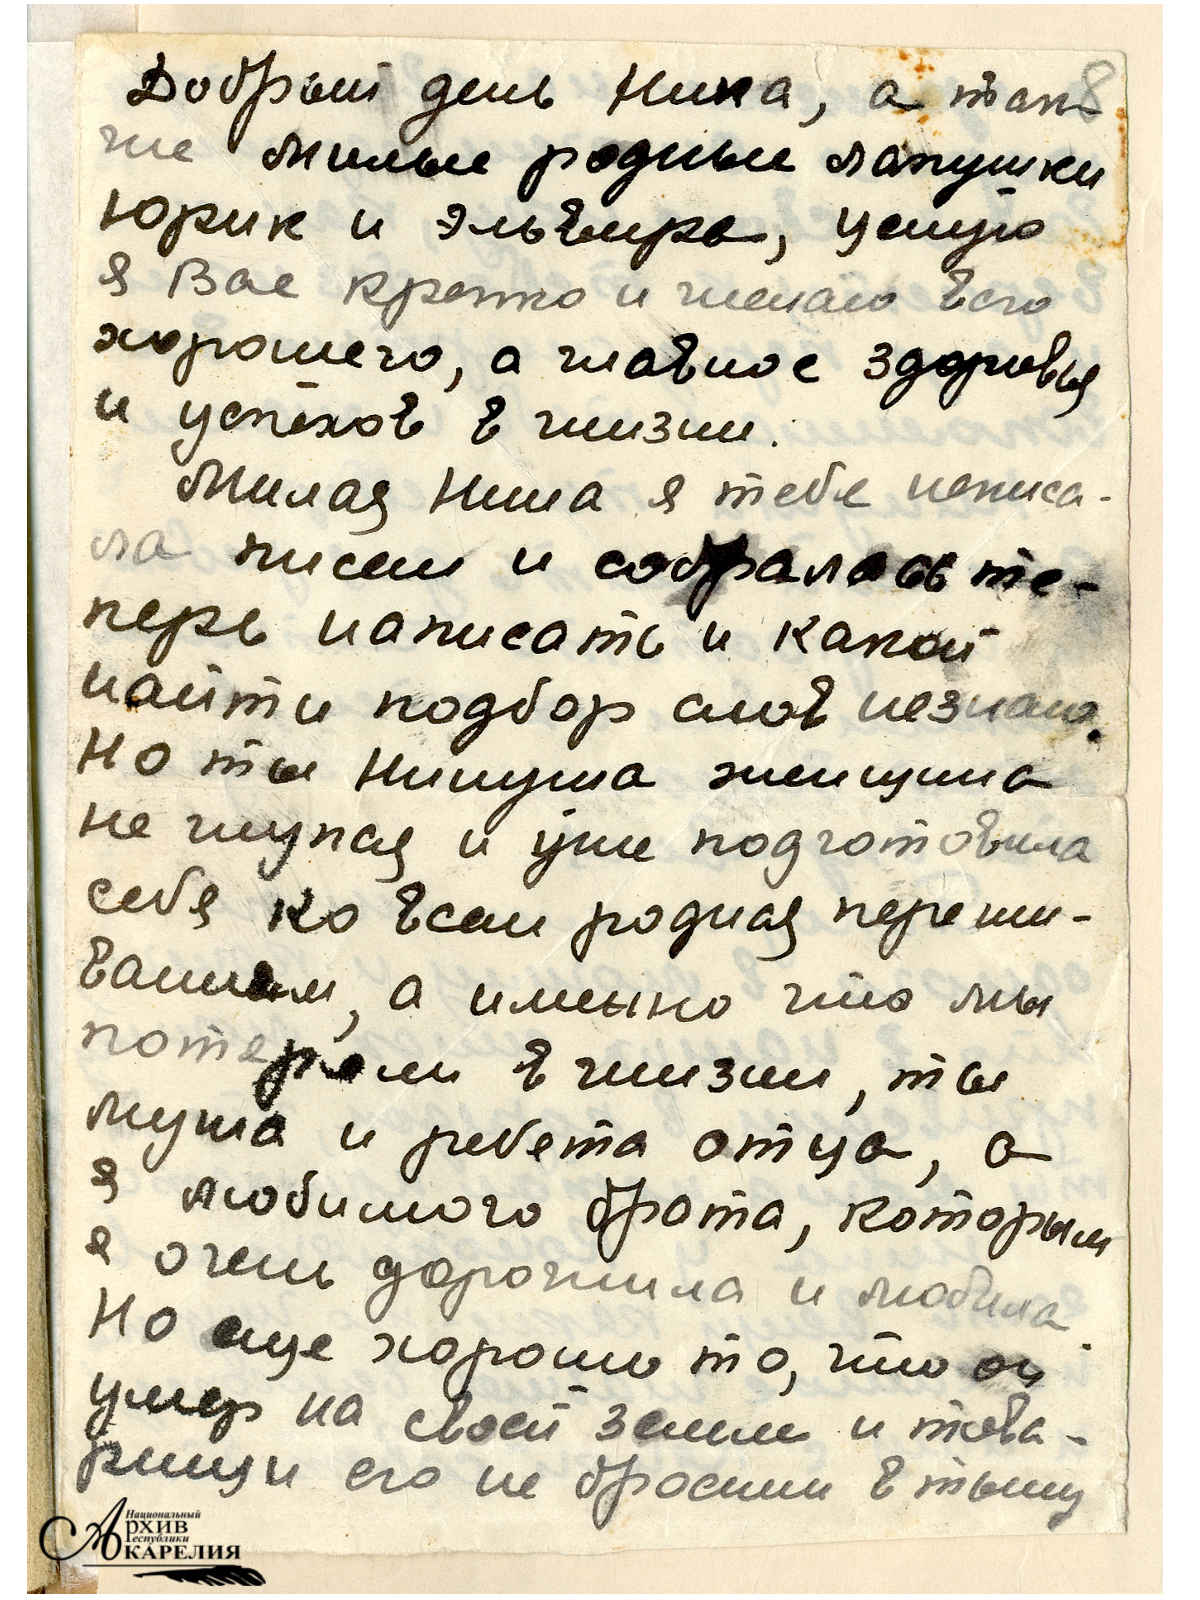 Добрый день Нина, а так
же милые родные лапушки
Юрик и Эльвира, целую
я Вас крепко и желаю всего
хорошего, а главное здоровья
и успехов в жизни.
Милая Нина я тебе неписа-
ла писем и собралась те-
перь написать и какой
найти подбор слов незнаю.
Но ты Нинуша женщина
не глупая и уже подготовила
себя ко всем родная пережи-
ваниям, а именно что мы
потеряли в жизни, ты
мужа и ребята отца, а
я любимого брата, которым
я очень дорожила и любила
Но еще хорошо то, что он
умер на своей земле и това-
рищи его не бросили в тылу
Национальный
Архив
Республики
Карелия